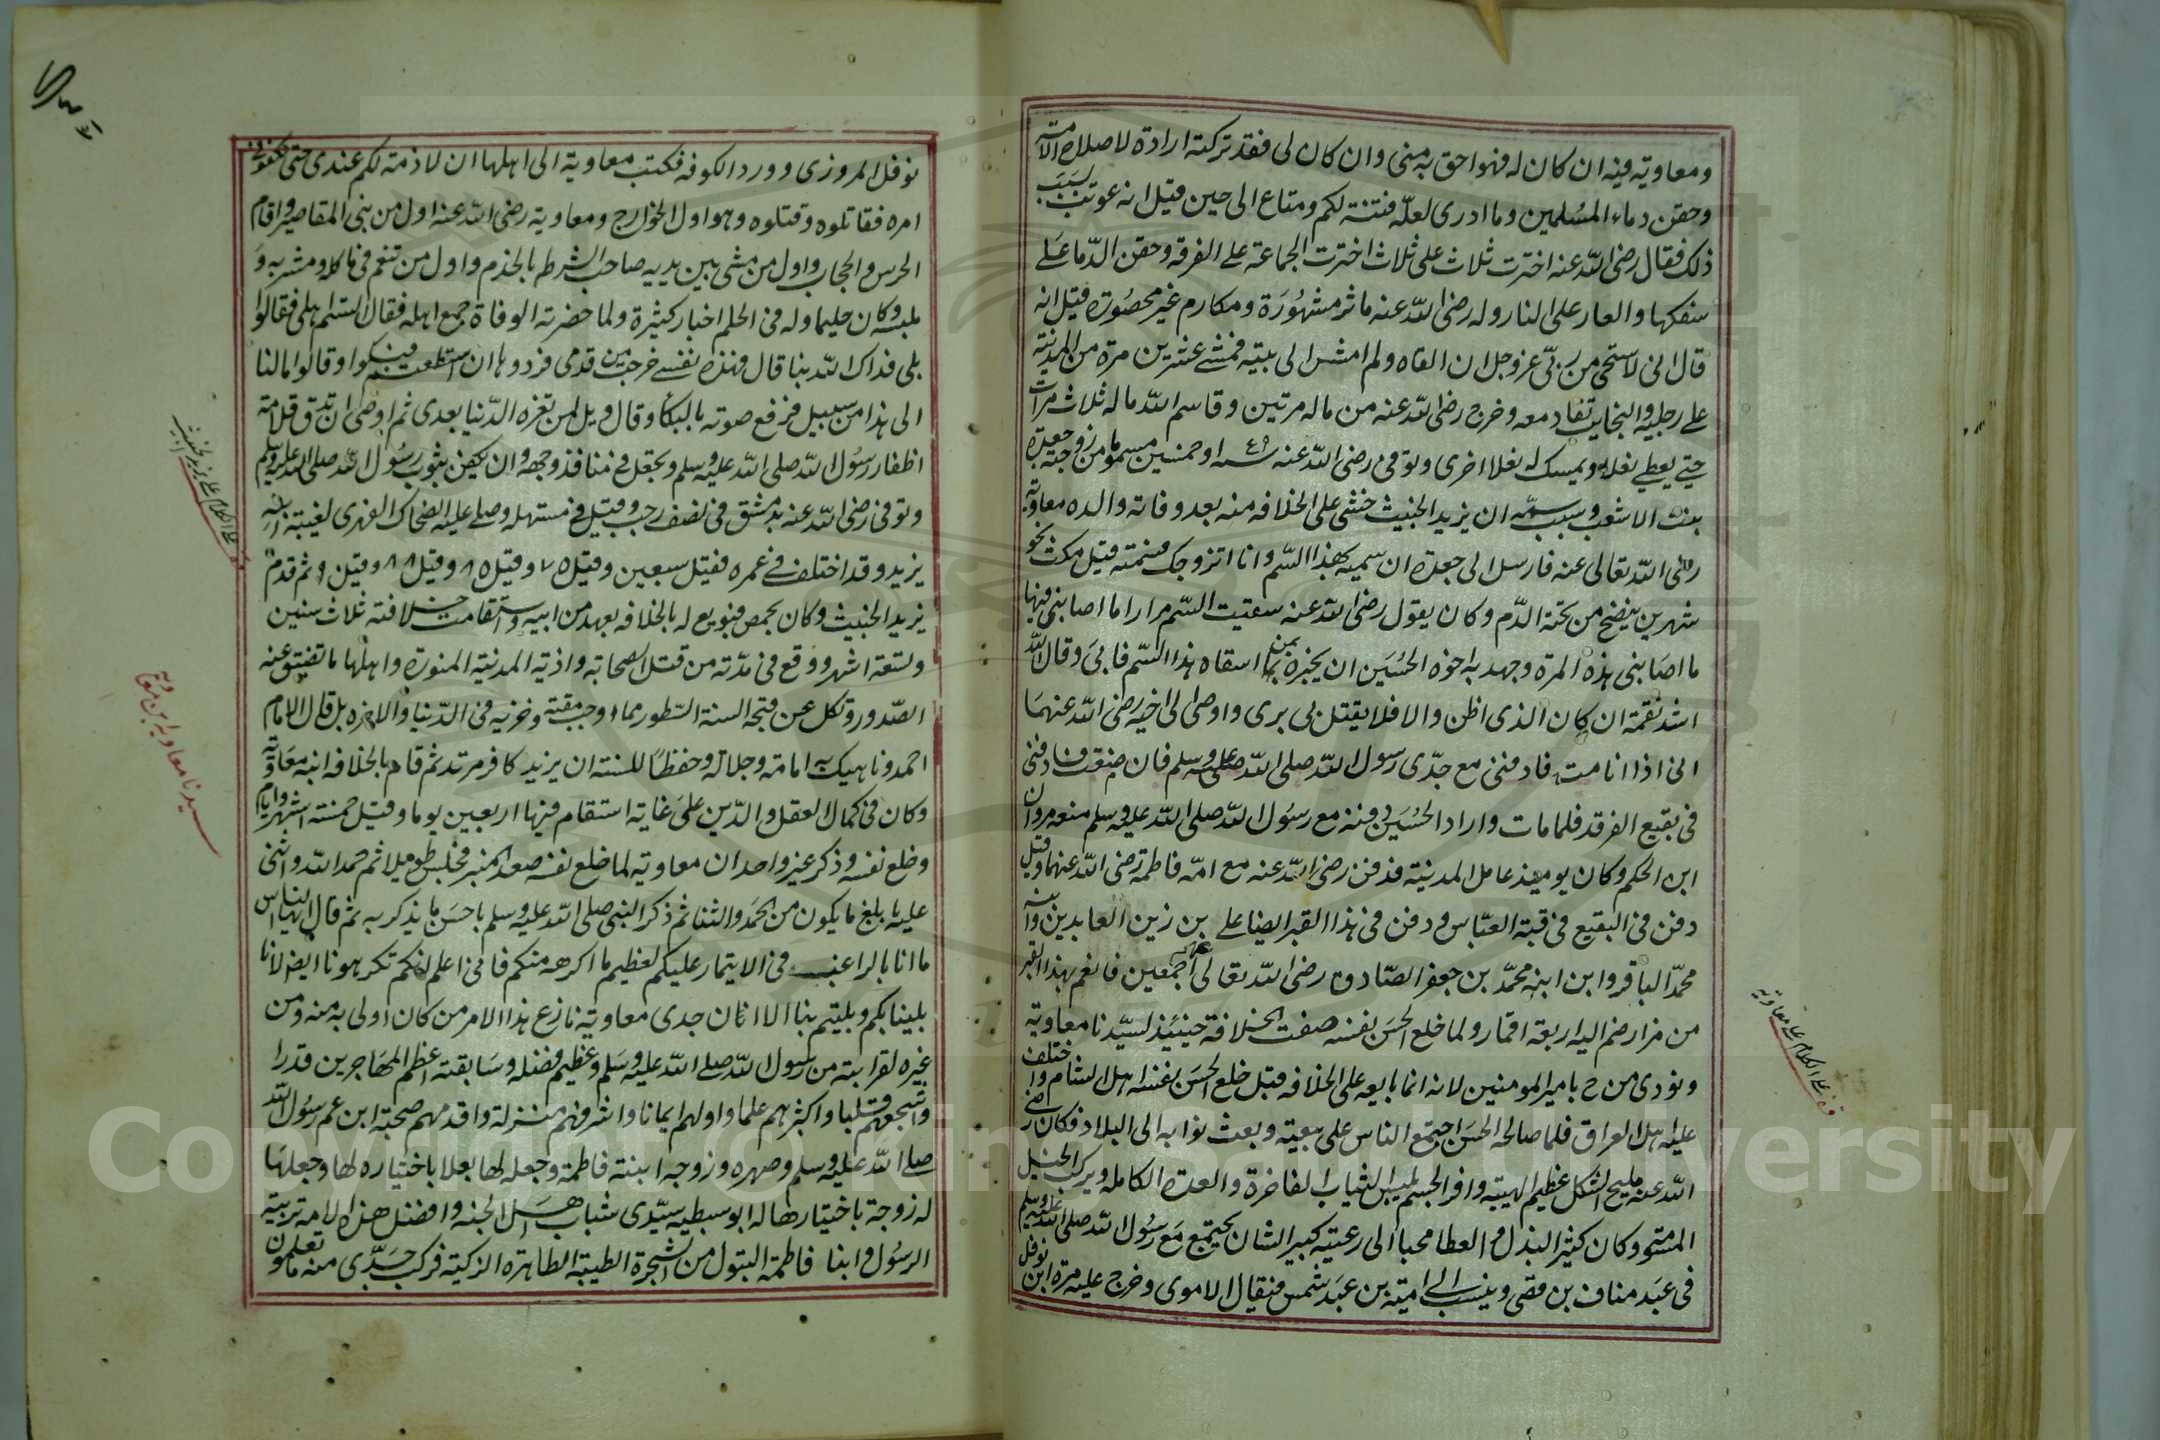 ومعاويه فيه ان كان له فهو احق به منى وان كان لى فقد تركته ارادة لاصلاح الامة
وحقن دماء المسلمين وما ادرى لعلّه فتنة لكم ومتاع الى حين قيل انه عوتب بسبب
ذلك فقال رضى الله عنه اخترت ثلاث على ثلاث اخترت الجماعة على الفرقه وحقن الدّما على
سفكها والعار على النار وله رضى الله عنه ماثر مشهورة ومكارم غير محصورة قيل انه
قال انى لاستحى من ربّى عز وجل ان القاه ولم امش الى بيته فمشى عشرين مرة من المدينة
على رجليه والنجايب تقاد معه وخرج رضى الله عنه من ماله مرتين وقاسم الله ماله ثلاث مرات
حتى يعطى نعلا ويمسك نعلا اخرى وتوفى رضى الله عنه سنه ٤٩ او خمسين مسموما من زوجته جعدة
بنت الاشعث وسبب سمّه ان يزيد الخبيث خشى على الخلافه منه بعد وفاته والده معاوية
رضى الله تعالى عنه فارسل الى جعدة ان سميه بهذا السّم وانا اتزوجك فسمته قيل مكث نحو
شهرين ينضح من تحته الدّم وكان يقول رضى الله عنه سقيت السّم مرارا ما اصابنى فيها
ما اصابنى هذه المرة وجهد به اخوه الحسين ان يخبره بمن اسقاه هذا السّم فابى وقال الله
اشد نقمة ان كان الذى اظن والا فلا يقتل بى برى واوصى الى اخيه رضى الله عنهما
انى اذا انامت فادفنى مع جدّى رسول الله صلى الله عليه وسلم فان منعت فادفنى
فى بقيع الغرقد فلما مات واراد الحسين دفنه مع رسول الله صلى الله عليه وسلم منعه مروان
ابن الحكم وكان يوميذ عامل المدينة فدفن رضى الله عنه مع امّه فاطمة رضى الله عنهما وقيل
دفن فى البقيع فى قبة العبّاس ودفن فى هذا القبر ايضا على بن زين العابدين وابنه
محمّد الباقر وابن ابنه محمّد بن جعفر الصّادق رضى الله تعالى عنهم اجمعين فانعم بهذا القبر
من مزار ضم اليه اربعة اقمار ولما خلع الحسن نفسه صفت الخلافة حينئذ لسيّدنا معاوية
ونودى من ح بامير المومنين لانه انما بايعه على الخلافه قبل خلع الحسن نفسه اهل الشام واختلف
عليه اهل العراق فلما صالحه الحسن اجتمع الناس على بيعته وبعث نوابه الى البلاد فكان رضى
الله عنه مليح الشكل عظيم الهيبة وافر الجسم يلبس الثياب الفاخرة والعدة الكامله ويركب الخيل
المسومة وكان كثير البذل والعطا محببا الى رعيته كبير الشان يجتمع مع رسول الله صلى الله عليه وسلم
فى عبد مناف بن قصى وينسب الى امية بن عبد شمس فيقال الاموى وخرج عليه مرة ابن نوفل
على معاوية
نوفل المروزى وورد الكوفه فكتب معاوية الى اهلها ان لا ذمة لكم عندى حتى تكفونى
امره فقاتلوه وقتلوه وهو اول الخوارج ومعاوية رضى الله عنه اول من بنى المقاصير واقام
الحرس والحجاب واول من مشى بين يديه صاحب الشرطه بالحذم واول من تنعم فى ماكله ومشربه و
ملبسه وكان حليما وله فى الحلم اخبار كثيرة ولما حضرته الوفاة جمع اهله فقال الستم اهلى فقالوا
بلى فداك الله بنا قال فهذه نفسى خرجت من قدمى فردوها ان استطعتم فبكوا وقالوا مالنا
الى هذا من سبيل فرفع صوته بالبكاء وقال ويل لمن تغره الدّنيا بعدى ثم اوصى ان تدق قلامة
اظفار رسول الله صلى الله عليه وسلم وتجعل فى منافذ وجهه وان يكفن بثوب رسول الله صلى الله عليه وسلم
وتوفى رضى الله عنه بدمشق فى نصف رجب وقيل فى مستهله وصلى عليه الضحاك الفهرى لغيبة ابنه
يزيد وقد اختلف فى عمره فقيل سبعين وقيل ٧٥ وقيل ٨٥ وقيل ٨٨ وقيل ٩٠ ثم قدم
يزيد الخبيث وكان بحمص فبويع له بالخلافه بعهد من ابيه واستقامت خلافته ثلاث سنين
وتسعة اشهر ووقع فى مدّته من قتل الصحابه واذية المدينة المنورة واهلها ما تضيق عنه
الصّدور وتكل عن قبحه السنة السّطور مما وجب مقته وخزيه فى الدّنيا والاخره بل قال الامام
احمد وناهيك به امامة وجلالة وحفظًا للسنة ان يزيد كافر مرتد ثم قام بالخلافه ابنه معاوية
وكان فى كمال العقل والدّين على غاية استقام فيها اربعين يوما وقيل خمسة اشهر وايام
وخلع نفسه وذكر غير واحد ان معاوية لما خلع نفسه صعد المنبر فجلس طويلا ثم حمد الله واثنى
عليه بابلغ ما يكون من الحمد والثنا ثم ذكر النبى صلى الله عليه وسلم باحسن ما يذكر به ثم قال ايها الناس
ما انا بالراغب فى الايتمار عليكم لعظيم ما اكرهه منكم فانى اعلم انكم تكرهونا ايضا لانا
بلينا بكم وبليتم بنا الا ان جدى معاوية نازع هذا الامر من كان اولى به منه ومن
غيره لقرابته من رسول الله صلى الله عليه وسلم وعظيم فضله وسابقته اعظم المهاجرين قدرا
واشجعهم قلبا واكثرهم علما واولهم ايمانا واشرفهم منزلة واقدمهم صحبة ابن عم رسول الله
صلى الله عليه وسلم وصهره وزوجه ابنته فاطمة وجعله لها بعلا باختياره لها وجعلها
له زوجة باختيارها له ابو سبطيه سيّدى شباب اهل الجنه وافضل هذه الامه تربية
الرسول وابنا فاطمة البتول من الشجرة الطيبة الطاهرة الزكية فركب جدّى منه ما تعلمون
سيدنا معاويه ابن معاويه
Copyright © King Saud University